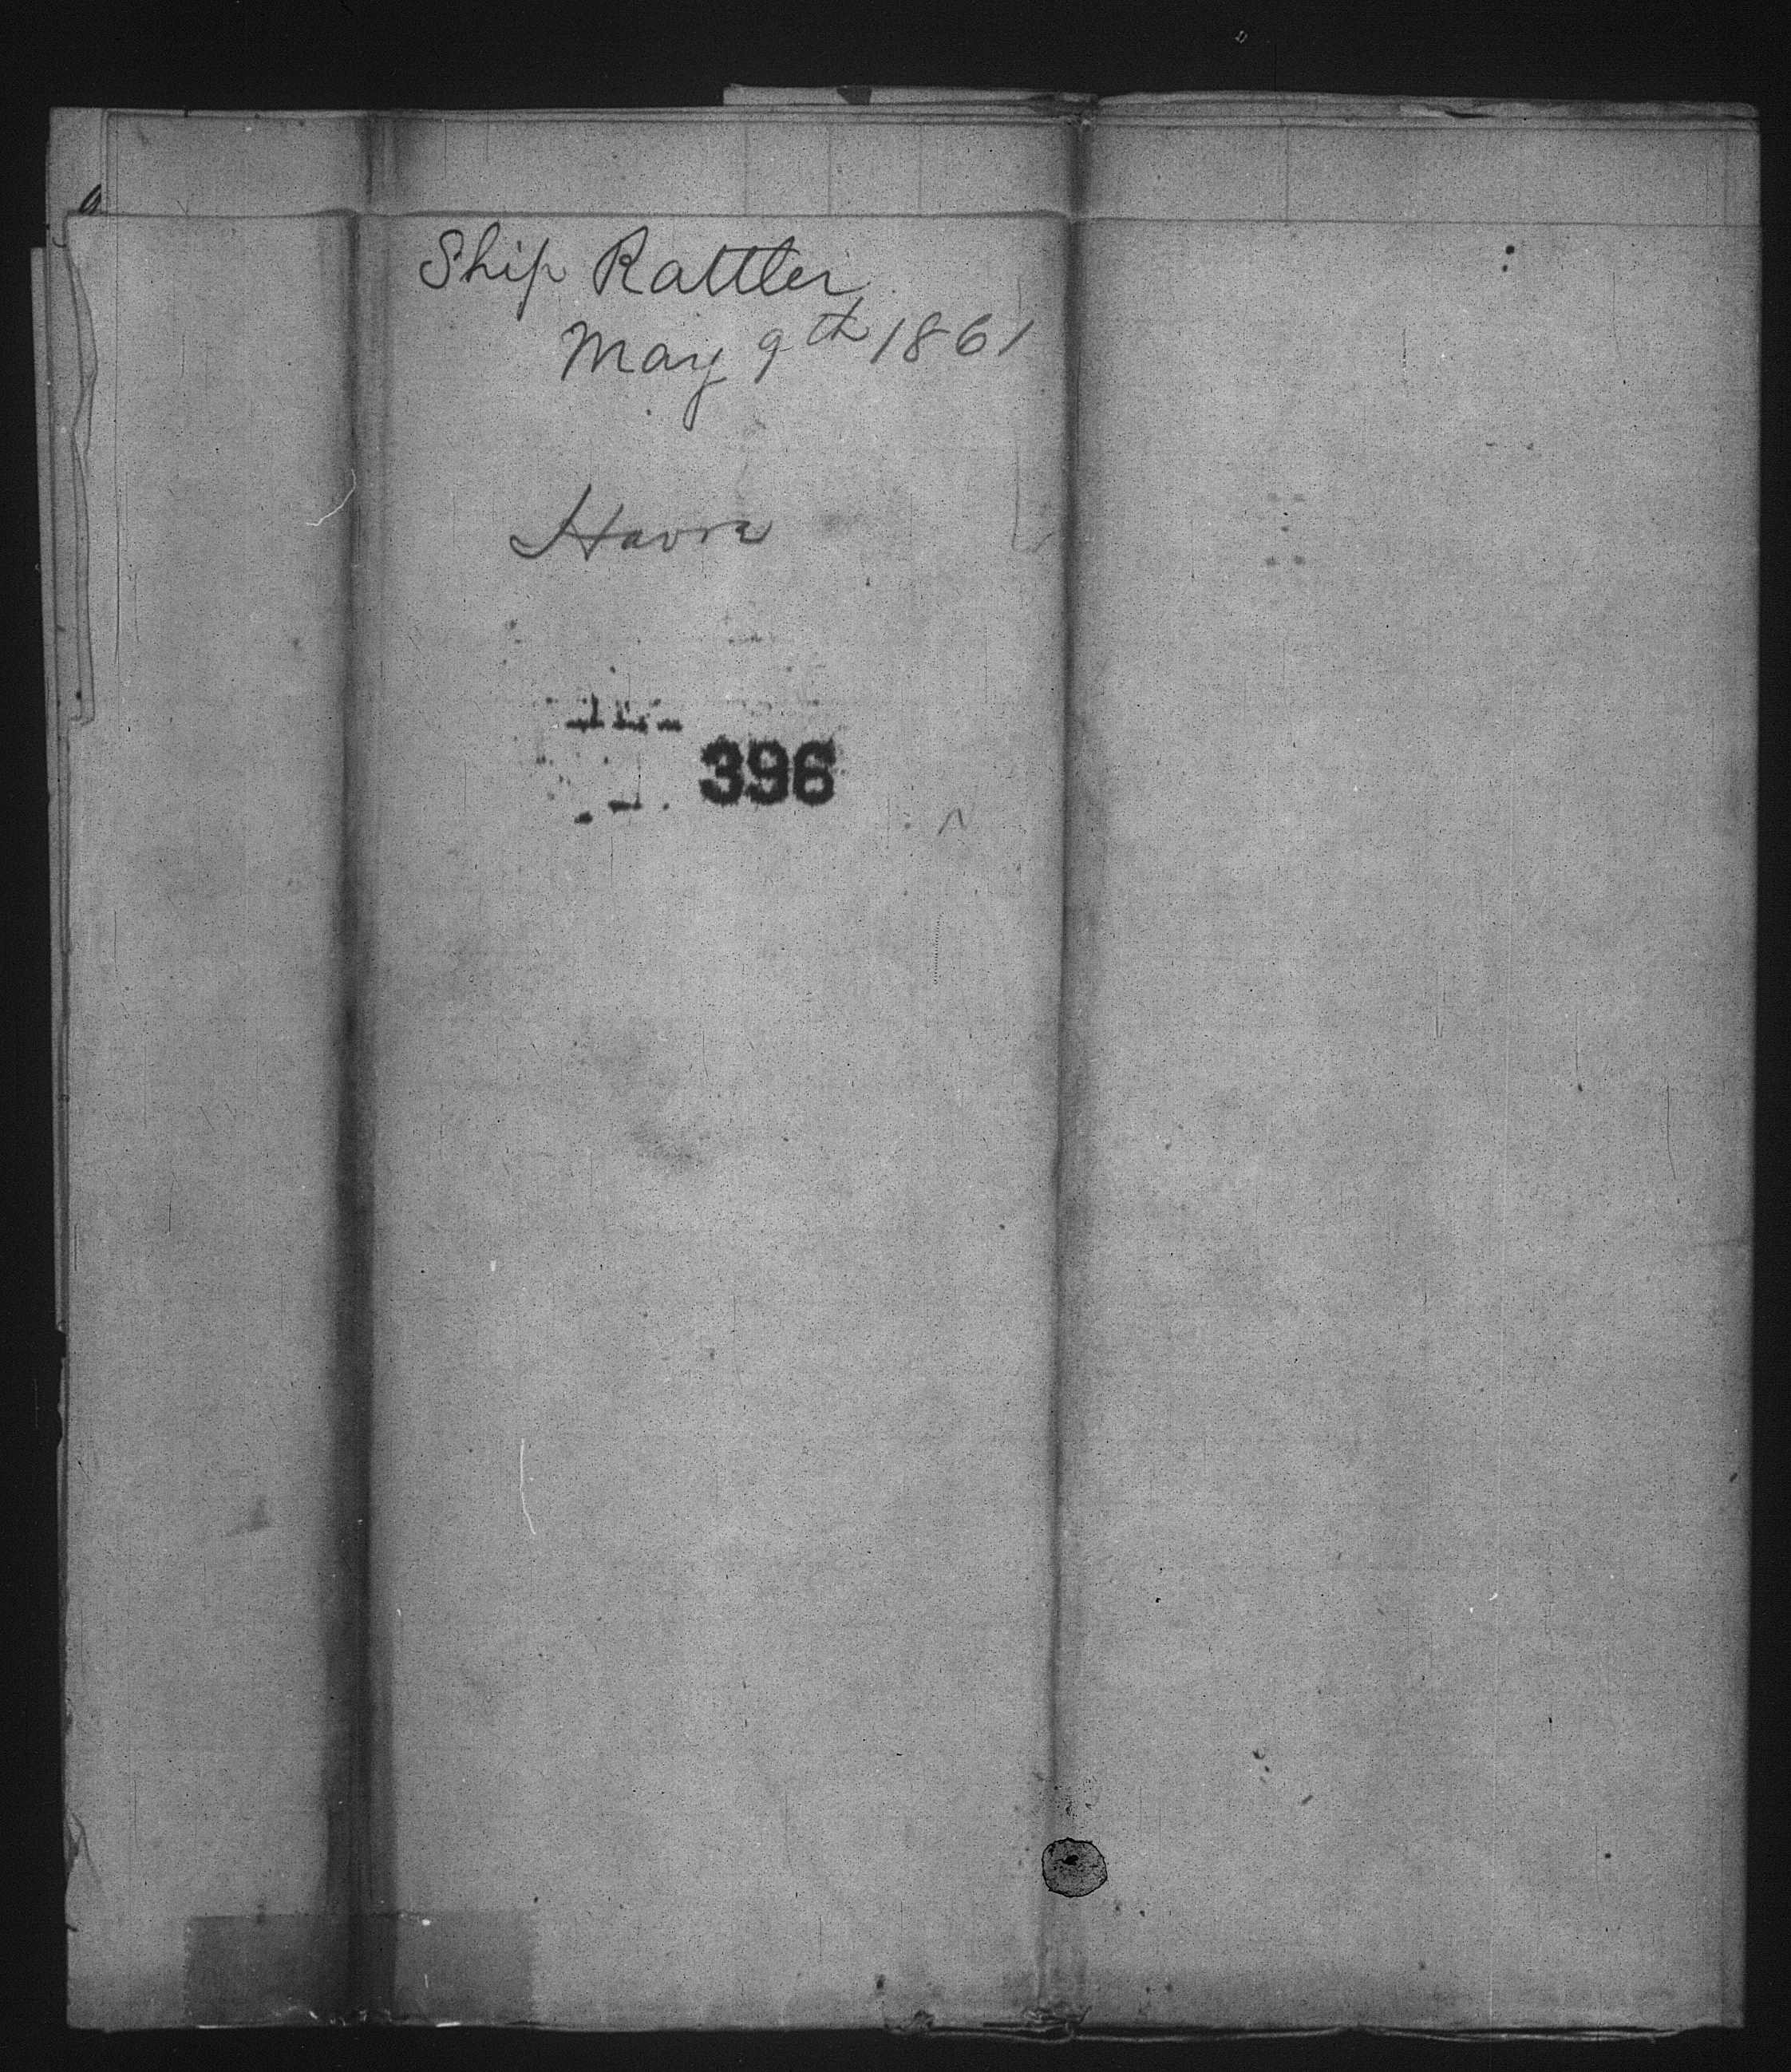 Ship Rattler
May 9th 1861
Havre
396